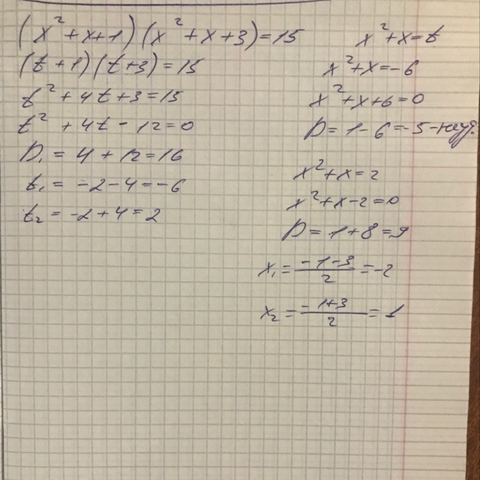 (x²+x+1)(x²+x+3)=15
(t+1)(t+3)=15
t²+4t+3=15
t²+4t-12=0
D₁=4+12=16
t₁=-2-4=-6
t₂=-2+4=2
x²+x=t
x²+x=-6
x²+x+6=0
D=1-6=-5-
x²+x=2
x²+x-2=0
D=1+8=9
x₁=(-1-3)/2=-2
x₂=(-1+3)/2=1